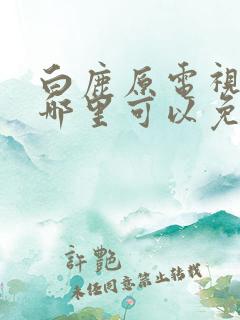 白鹿原電視
哪里可以免
許艷
未经同意禁止转载